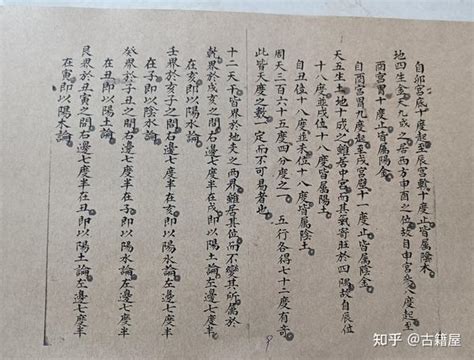 自卯宮底十度起至辰宮軫十度止皆屬陰木
地四生金天九成之居西方申酉之位故自申宮參八度起至
酉宮胃十度止皆屬陽金
自酉宮胃九度起至戌宮壁十一度止皆屬陰金
天五生土地十成之雖居中宮而其氣寄旺於四隅故自辰位
十八度並戌位十八度皆屬陽土
自丑位十八度並未位十八度皆屬陰土
周天三百六十五度四分度之一五行各得七十二度有奇
此皆天度之數一定而不可易者也
十二天干皆界於地支之兩界雖居其位而不變其所屬於
乾界於戌亥之間右邊七度半在戌即以陽土論左邊七度半
在亥即以陰水論
壬界於亥子之間右邊七度半在亥即以陽水論左邊七度半
在子即以陰水論
癸界於子丑之間右邊七度半在子即以陽水論左邊七度半
在丑即以陽土論
艮界於丑寅之間右邊七度半在丑即以陽土論左邊七度半
在寅即以陽木論
知乎 @古籍屋